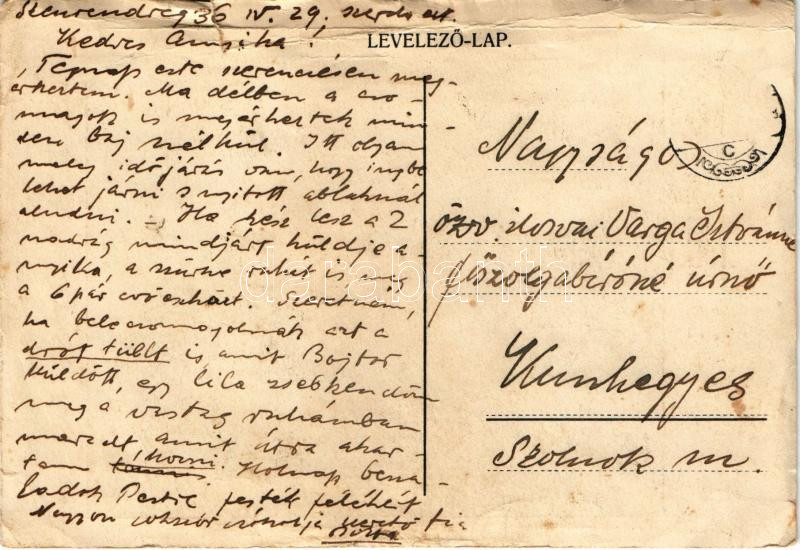 Szentendre, 36 IV. 29. szerda est.
Kedves Anyika!
LEVELEZŐ-LAP.
Tegnap este szerencsésen meg-
érkeztem. Ma délben a cso-
magok is megérkeztek min-
den baj nélkül. Itt olyan
meleg időjárás van, hogy ingbe
lehet járni s nyitott ablaknál
aludni. – Ha kész lesz a 2
nadrág mindjárt küldje a-
nyika, a szürke ruhát is meg
a 6 pár Szeretném,
ha belecsomagolnák azt a
drót tüllt is amit Bojtor
küldött, egy lila zsebkendőm
meg a vastag ruhámban
maradt amit útra akar-
tam hozni. Holnap bena-
ladok Pestre festék felékért
Nagyon sokszor csókolja szerető fia
Nagyságos
özv. ilosvai Varga Istvánné
főszolgabíróné úrnő
Kunhegyes
Szolnok m.
C
darabanth